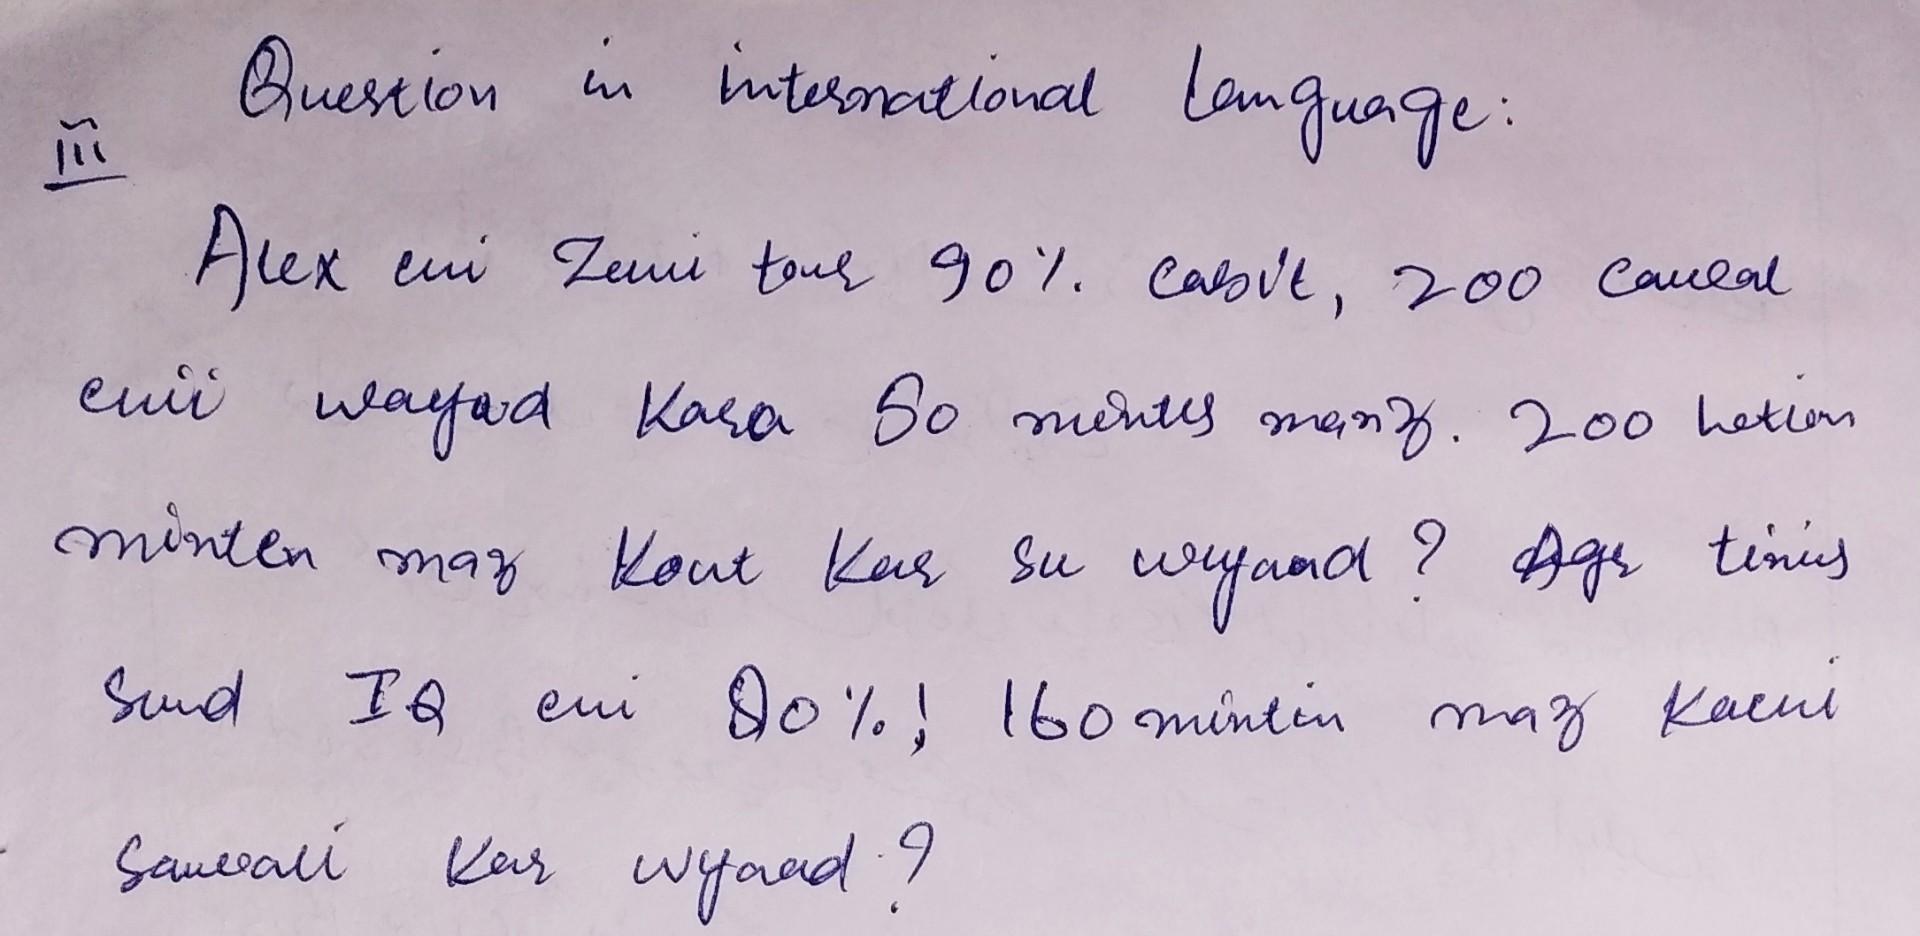 Question in international language:
iii
Alex cui Zeui tour 90%. cabit, 200 caueal
cuii wayad Kara 50 mintes manz. 200 hetien
minten maz Kout Kar su wyaad? Agr tinis
Sund IQ cui 90%! 160 mintin maz Kacui
Saueali Kar wyaad?